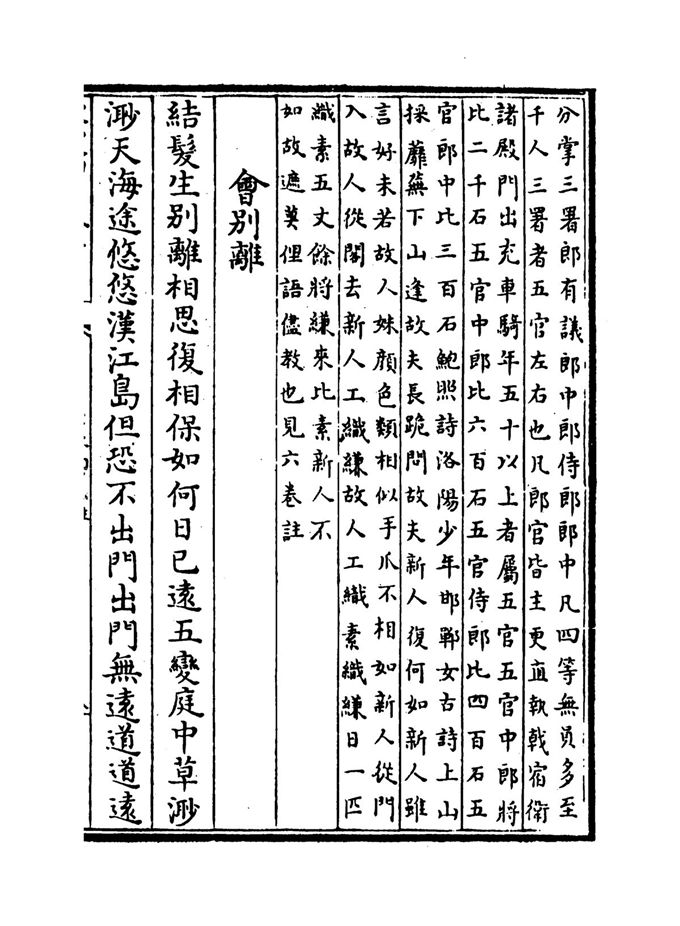 分掌三署郎有議郎中郎侍郎郎中凡四等無員多至
千人三署者五官左右也凡郎官皆主更直執戟宿衛
諸殿門出充車騎年五十以上者屬五官五官中郎將
比二千石五官中郎比六百石五官侍郎比四百石五
官郎中比三百石鮑照詩洛陽少年邯鄲女古詩上山
採蘼蕪下山逢故夫長跪問故夫新人復何如新人雖
言好未若故人姝顏色類相似手爪不相如新人從門
入故人從閤去新人工織縑故人工織素織縑日一匹
織素五丈餘將縑來比素新人不
如故遮莫俚語儘教也見六卷註
會别離
結髮生别離相思復相保如何日已遠五變庭中草渺
渺天海途悠悠漢江島但恐不出門出門無遠道道遠